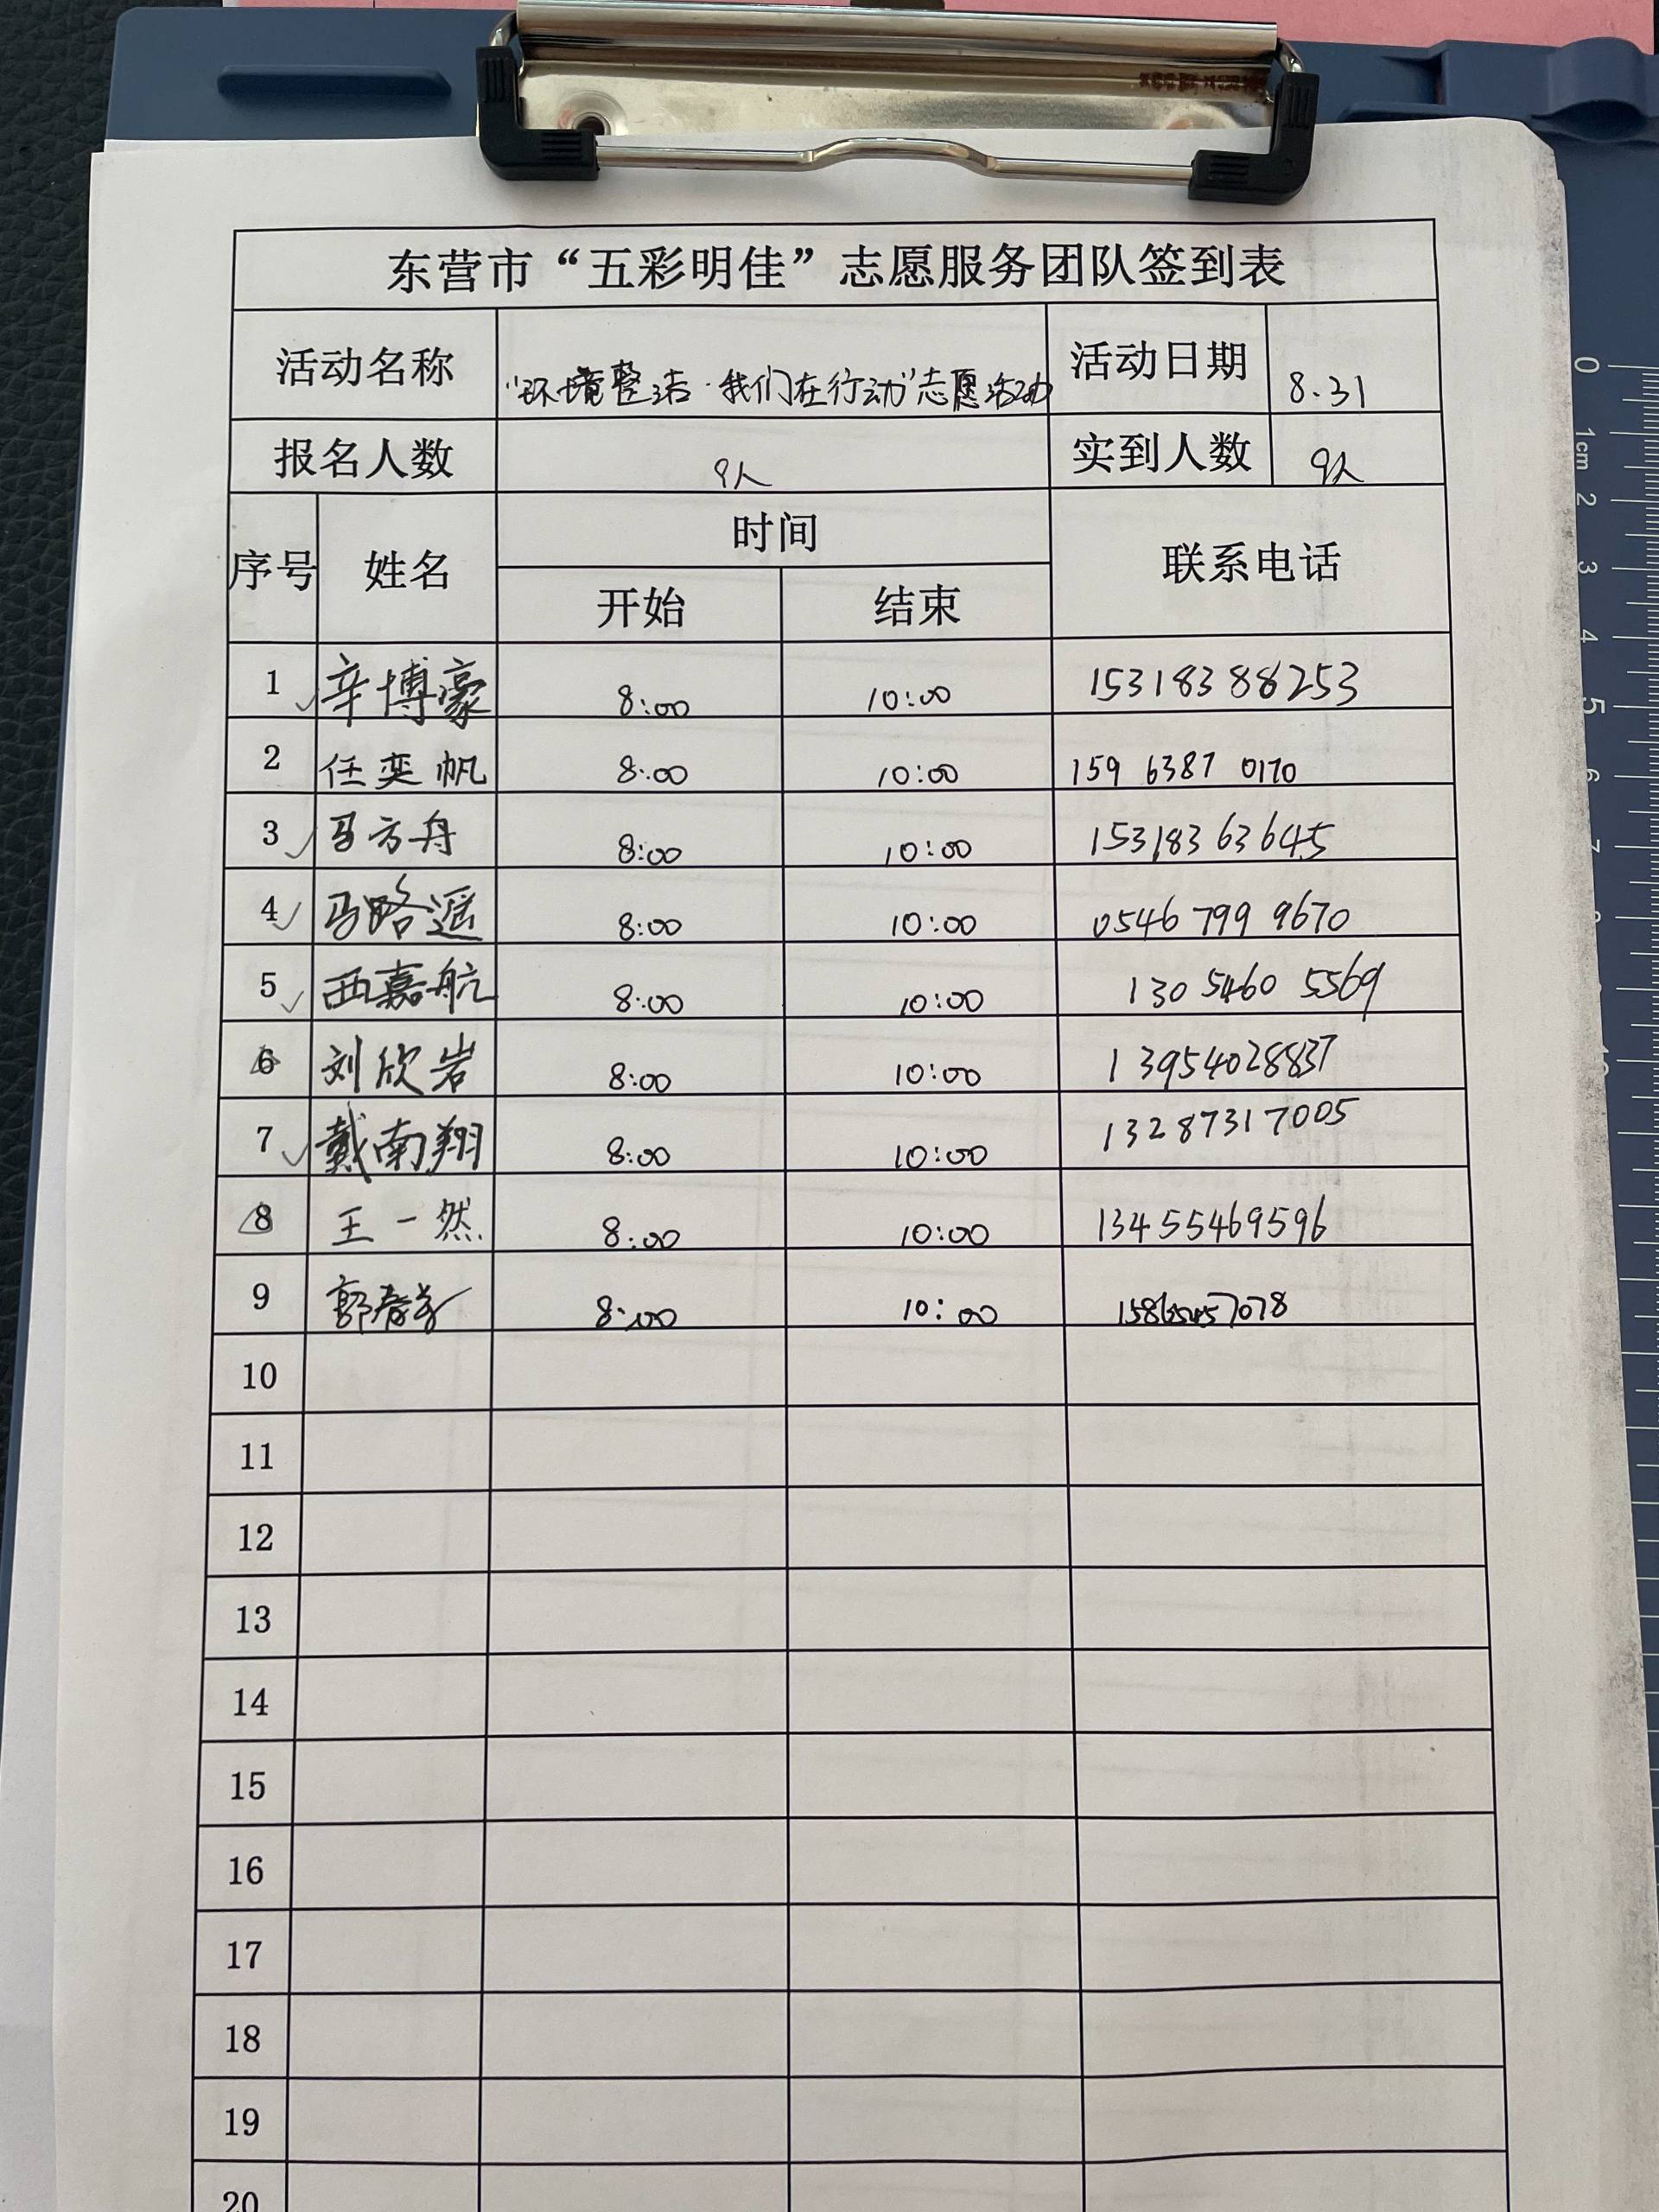 东营市“五彩明佳”志愿服务团队签到表
活动名称 “环境整洁·我们在行动”志愿活动 活动日期 8.31
报名人数 9人 实到人数 9人
序号 姓名 时间 联系电话
开始 结束
1 辛博豪 8:00 10:00 15318388253
2 任奕帆 8:00 10:00 159 6387 0170
3 马方舟 8:00 10:00 15318363645
4 马路遥 8:00 10:00 0546 799 9670
5 西嘉航 8:00 10:00 130 5460 5569
6 刘欣岩 8:00 10:00 13954028837
7 戴南翔 8:00 10:00 13287317005
8 王一然 8:00 10:00 13455469596
9 郭春 8:00 10:00
10
11
12
13
14
15
16
17
18
19
20
0
1cm
2
3
4
5
6
7